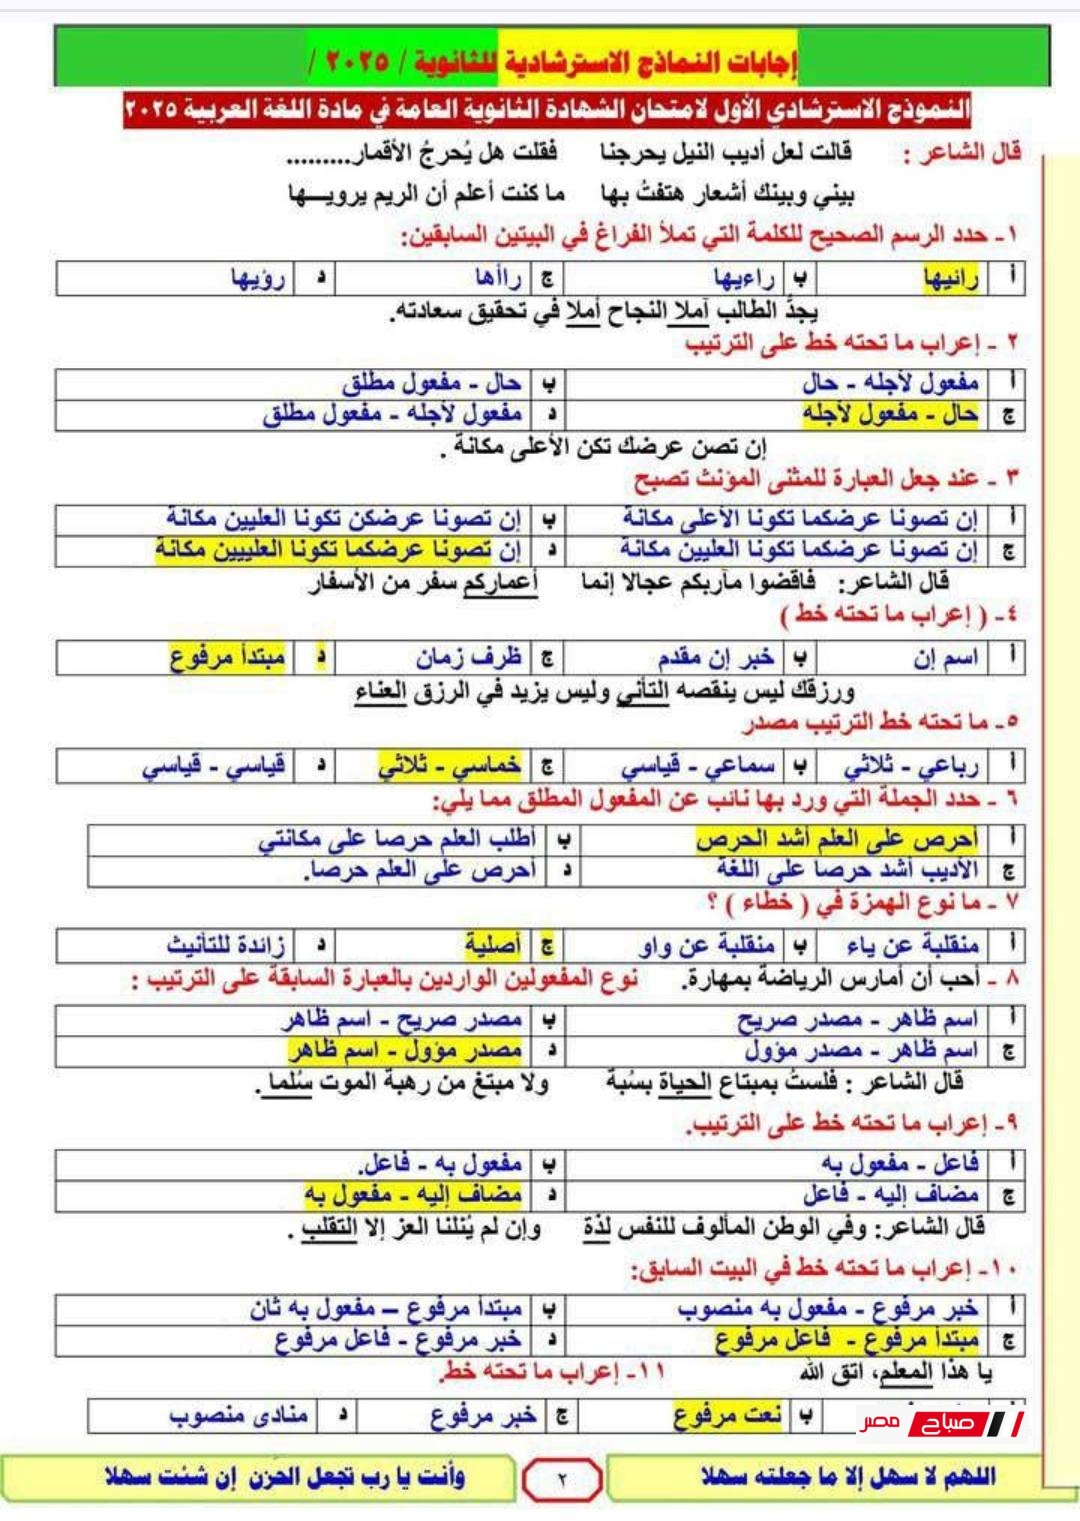 إجابات النماذج الاسترشادية للثانوية / ٢٠٢٥ /
النموذج الاسترشادي الأول لامتحان الشهادة الثانوية العامة في مادة اللغة العربية ٢٠٢٥
قال الشاعر : قالت لعل أديب النيل يحرجنا فقلت هل يُحرجُ الأقمار.........
بيني وبينك أشعار هتفتُ بها ما كنت أعلم أن الريم يرويـــها
١- حدد الرسم الصحيح للكلمة التي تملأ الفراغ في البيتين السابقين:
أ رائيها ب راءيها ج راأها د رؤيها
يجدَّ الطالب آملا النجاح أملا في تحقيق سعادته.
٢ - إعراب ما تحته خط على الترتيب
أ مفعول لأجله - حال ب حال - مفعول مطلق
ج حال - مفعول لأجله د مفعول لأجله - مفعول مطلق
إن تصن عرضك تكن الأعلى مكانة .
٣ - عند جعل العبارة للمثنى المؤنث تصبح
أ إن تصونا عرضكما تكونا الأعلى مكانة ب إن تصونا عرضكن تكونا العليين مكانة
ج إن تصونا عرضكما تكونا العليين مكانة د إن تصونا عرضكما تكونا العلييين مكانة
قال الشاعر: فاقضوا مآربكم عجالا إنما أعماركم سفر من الأسفار
٤- ( إعراب ما تحته خط )
أ اسم إن ب خبر إن مقدم ج ظرف زمان د مبتدأ مرفوع
ورزقك ليس ينقصه التأني وليس يزيد في الرزق العناء
٥- ما تحته خط الترتيب مصدر
أ رباعي - ثلاثي ب سماعي - قياسي ج خماسي - ثلاثي د قياسي - قياسي
٦ - حدد الجملة التي ورد بها نائب عن المفعول المطلق مما يلي:
أ أحرص على العلم أشد الحرص ب أطلب العلم حرصا على مكانتي
ج الأديب أشد حرصا على اللغة د أحرص على العلم حرصا.
٧ - ما نوع الهمزة في ( خطاء ) ؟
أ منقلبة عن ياء ب منقلبة عن واو ج أصلية د زائدة للتأنيث
٨ - أحب أن أمارس الرياضة بمهارة. نوع المفعولين الواردين بالعبارة السابقة على الترتيب :
أ اسم ظاهر - مصدر صريح ب مصدر صريح - اسم ظاهر
ج اسم ظاهر - مصدر مؤول د مصدر مؤول - اسم ظاهر
قال الشاعر : فلستُ بمبتاع الحياة بسُبة ولا مبتغ من رهبة الموت سُلما.
٩- إعراب ما تحته خط على الترتيب.
أ فاعل - مفعول به ب مفعول به - فاعل.
ج مضاف إليه - فاعل د مضاف إليه - مفعول به
قال الشاعر: وفي الوطن المألوف للنفس لذة وإن لم يُنلنا العز إلا التقلب .
١٠- إعراب ما تحته خط في البيت السابق:
أ خبر مرفوع - مفعول به منصوب ب مبتدأ مرفوع – مفعول به ثان
ج مبتدأ مرفوع - فاعل مرفوع د خبر مرفوع - فاعل مرفوع
يا هذا المعلم، اتق الله ١١- إعراب ما تحته خط.
ب نعت مرفوع ج خبر مرفوع د منادى منصوب
صباح مصر
اللهم لا سهل إلا ما جعلته سهلا ٢ وأنت يا رب تجعل الحَزن إن شئت سهلا